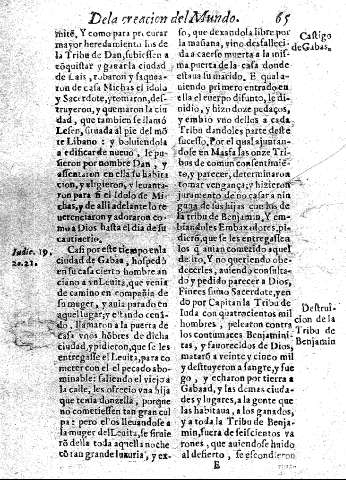 De la creacion del Mundo. 65
mitē. Y como para procurar
mayor heredamiento los de
la Tribu de Dan, subiessen a
cōquistar y ganar la ciudad
de Lais, robaron y saquea-
ron de casa Michas el idolo
y Sacerdote, y tomarō, des-
truyeron, y quemaron la ciu
dad, que tambien se llamó
Lesen, situada al pie del mō
te Libano: y boluiendola
a edificar de nueuo, le pu-
sieron por nombre Dan, y
assentaron en ella su habita
cion, y eligieron, y leuanta-
ron para si el Idolo de Mi-
chas, y de alli adelante le re
uerenciaron y adoraron co-
mo a Dios hasta el dia de su
cautiuerio.
Iudic. 19.
20. 21.
Casi por este tiempo en la
ciudad de Gabaa, hospedó
en su casa cierto hombre an
ciano a vn Leuita, que venia
de camino en compañia de
su muger, y auia parado en
aquel lugar; y estando cenā
do, llamaron a la puerta de
casa vnos hōbres de dicha
ciudad, y pidieron, que se les
entregasse el Leuita, para co
meter con el el pecado abo-
minable: saliendo el viejo a
la calle, les ofrecio vna hija
que tenia donzella, porque
no cometiessen tan gran cul
pa: pero ellos lleuandose a
la muger del Leuita, se siruie
rō della toda aquella noche
cō tan grande luxuria, y ex-
so, que dexandola libre por
la mañana, vino desfalleci-
da a caerse muerta a la mis-
ma puerta de la casa donde
estaua su marido. El qual a-
uiendo primero entrado en
ella el cuerpo difunto, le di-
uidio, y hizo doze pedaços,
y embió vno dellos a cada
Tribu dandoles parte deste
sucesso. Por el qual ajuntan-
dose en Masfa las onze Tri-
bus de comun consentimiē-
to, y parecer, determinaron
tomar vengança; y hizieron
juramento de no casar a nin
guna de sus hijas con los de
la tribu de Benjamin, Y em-
biandoles Embaxadores, pi-
dierō, que se les entregassen
los q̄ auian cometido aquel
delito, Y no queriendo obe-
decerles, auiendo consulta-
do y pedido parecer a Dios,
Finees sumo Sacerdote, yen
do por Capitan la Tribu de
Iuda con quatrocientos mil
hombres, pelearon contra
los contumaces Benjamini-
tas, y fauorecidos de Dios,
matarō a veinte y cinco mil
y destruyeron a sangre, y fue
go, y echaron por tierra a
Gabaad, y las demas ciuda-
des y lugares, a la gente que
las habitaua, a los ganados,
y a toda la Tribu de Benja-
min, fuera de seiscientos va
rones, que auiendose huido
al desierto, se escondieron
Castigo
de Gabas.
Destrui-
cion de la
Tribu de
Benjamin
E